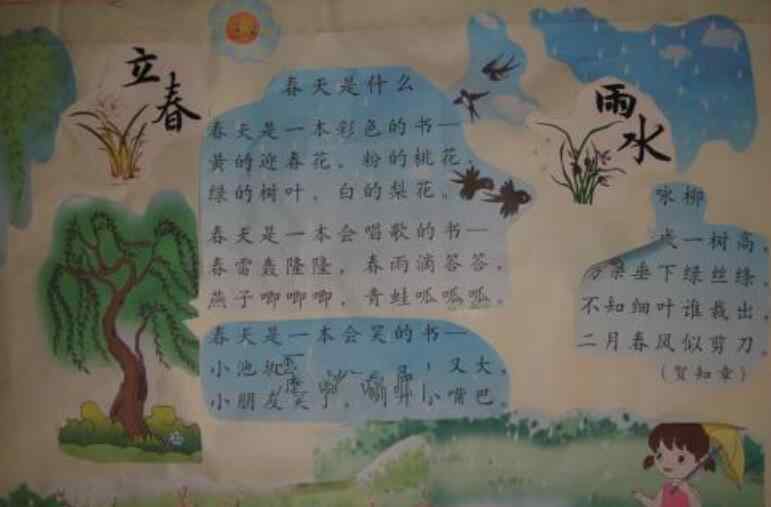 立春
春天是什么
春天是一本彩色的书—
黄的迎春花，粉的桃花，
绿的树叶，白的梨花。
春天是一本会唱歌的书—
春雷轰隆隆，春雨滴答答，
燕子唧唧唧，青蛙呱呱呱。
春天是一本会笑的书—
小池 又大，
小朋友笑了， 小嘴巴。
雨水
咏柳
成一树高，
万条垂下绿丝绦。
不知细叶谁裁出，
二月春风似剪刀。
(贺知章)